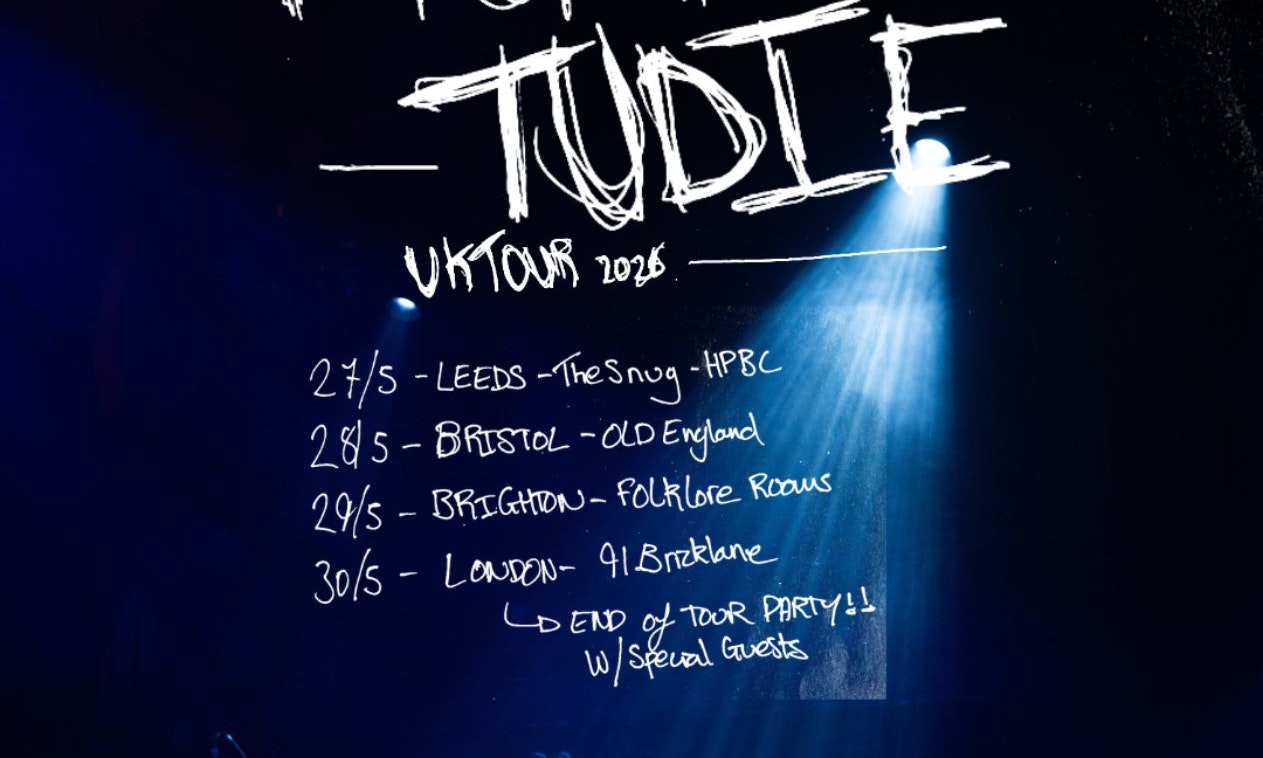 TUDIE
UK TOUR 2026
27/5 - LEEDS - The Snug - HPBC
28/5 - BRISTOL - OLD England
29/5 - BRIGHTON - Folklore Rooms
30/5 - LONDON - 91 Bricklane
END of TOUR PARTY!!
W/ Special Guests